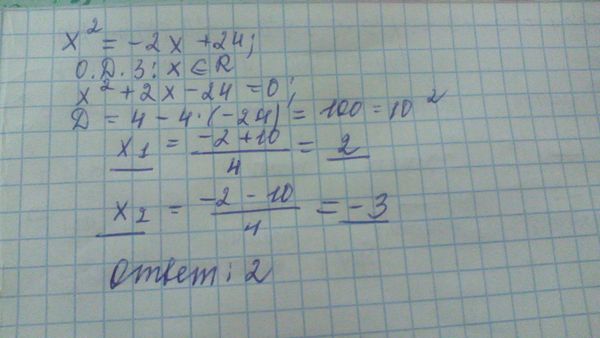 x² = -2x + 24;
О.Д.З: x ∈ R
x² + 2x - 24 = 0;
D = 4 - 4·(-24) = 100 = 10²
x1 = (-2 + 10)/4 = 2
x2 = (-2 - 10)/4 = -3
Ответ: 2